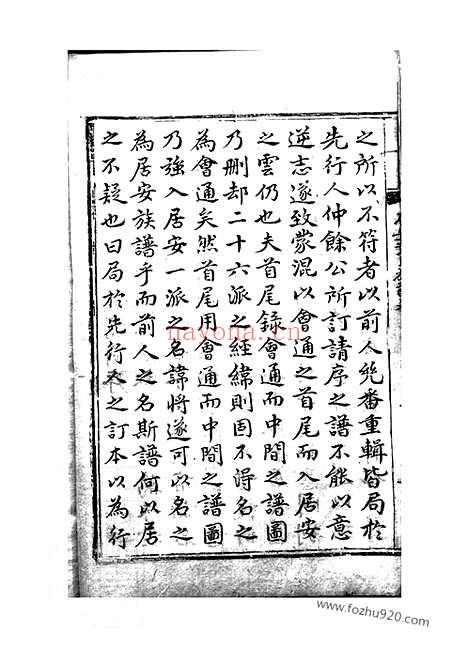 之所以不符者以前人幾番重輯皆局於
先行人仲餘公所訂請序之譜不能以意
逆志遂致蒙混以會通之首尾而入居安
之雲仍也夫首尾錄會通而中間之譜圖
乃刪却二十六派之經緯則固不得名之
為會通矣然首尾用會通而中間之譜圖
乃強入居安一派之名諱將遂可以名之
為居安族譜乎而前人之名斯譜何以居
之不疑也曰局於先行人之訂本以為行
nayona.cn
www.fozhu920.com